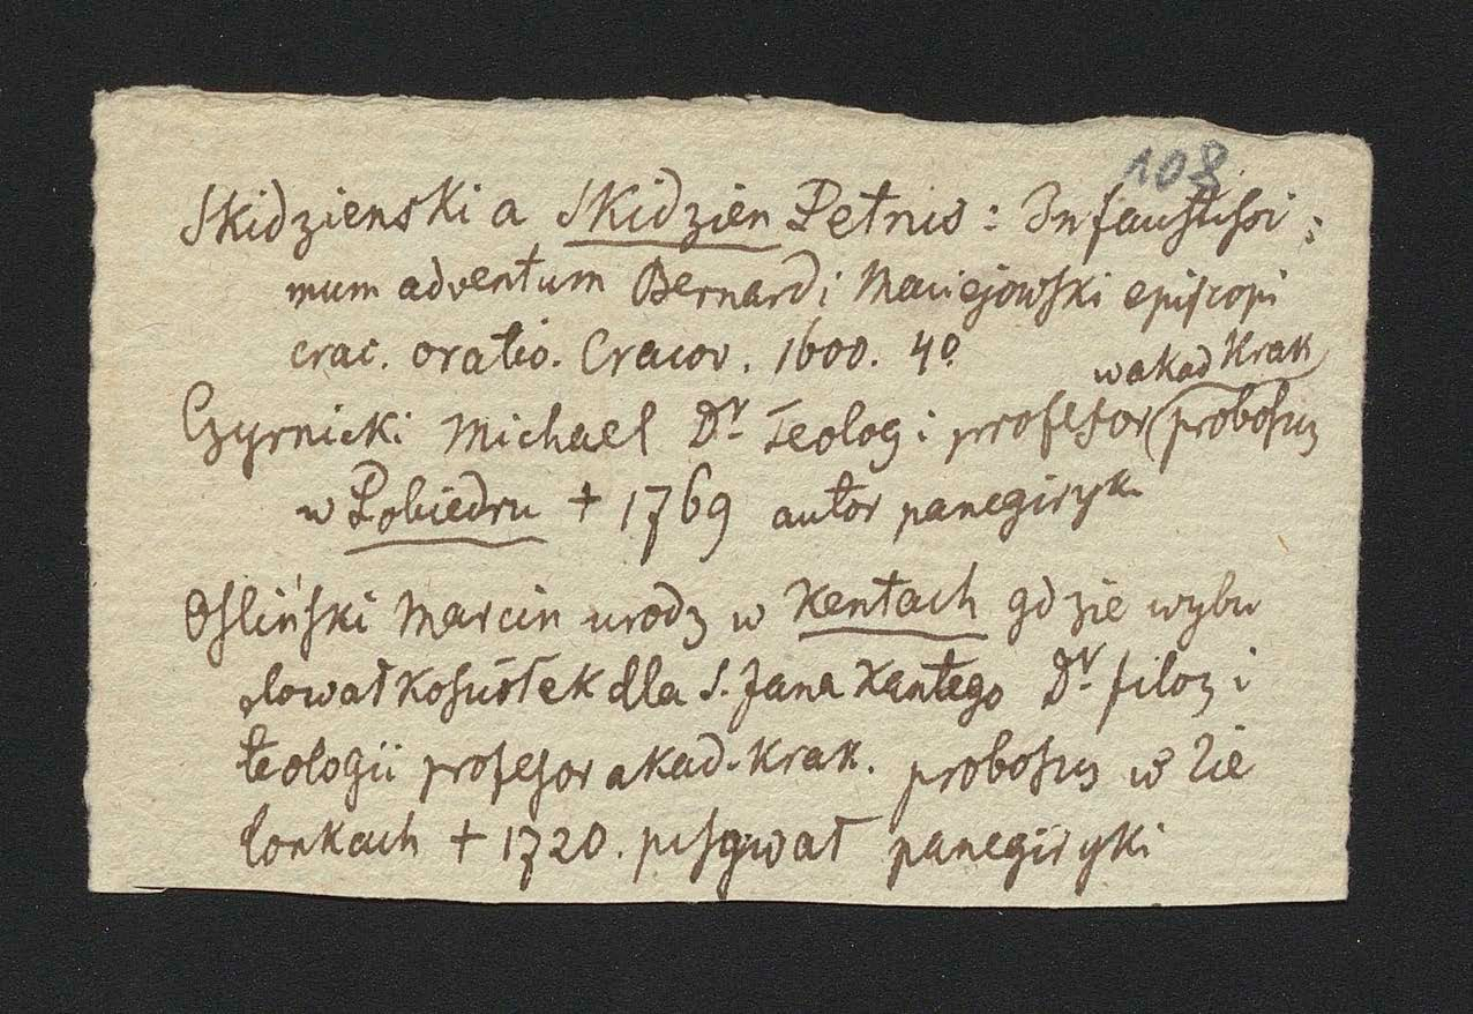 108
Skidzienski a Skidzien Petrus : In faustissi :
mum adventum Bernardi Maciejowski episcopi
crac. oratio. Cracov. 1600. 4o
w akad Krak
Czyrnicki Michael Dr Teolog i profesor (proboszcz
w Pobiedru + 1769 autor panegiryk
Osliński Marcin urodz w Kentach gdzie wybu
dował kościołek dla S. Jana Kantego Dr filoz i
teologii profesor akad. Krak. proboszcz w Zie
lonkach + 1720. pisywał panegiryki